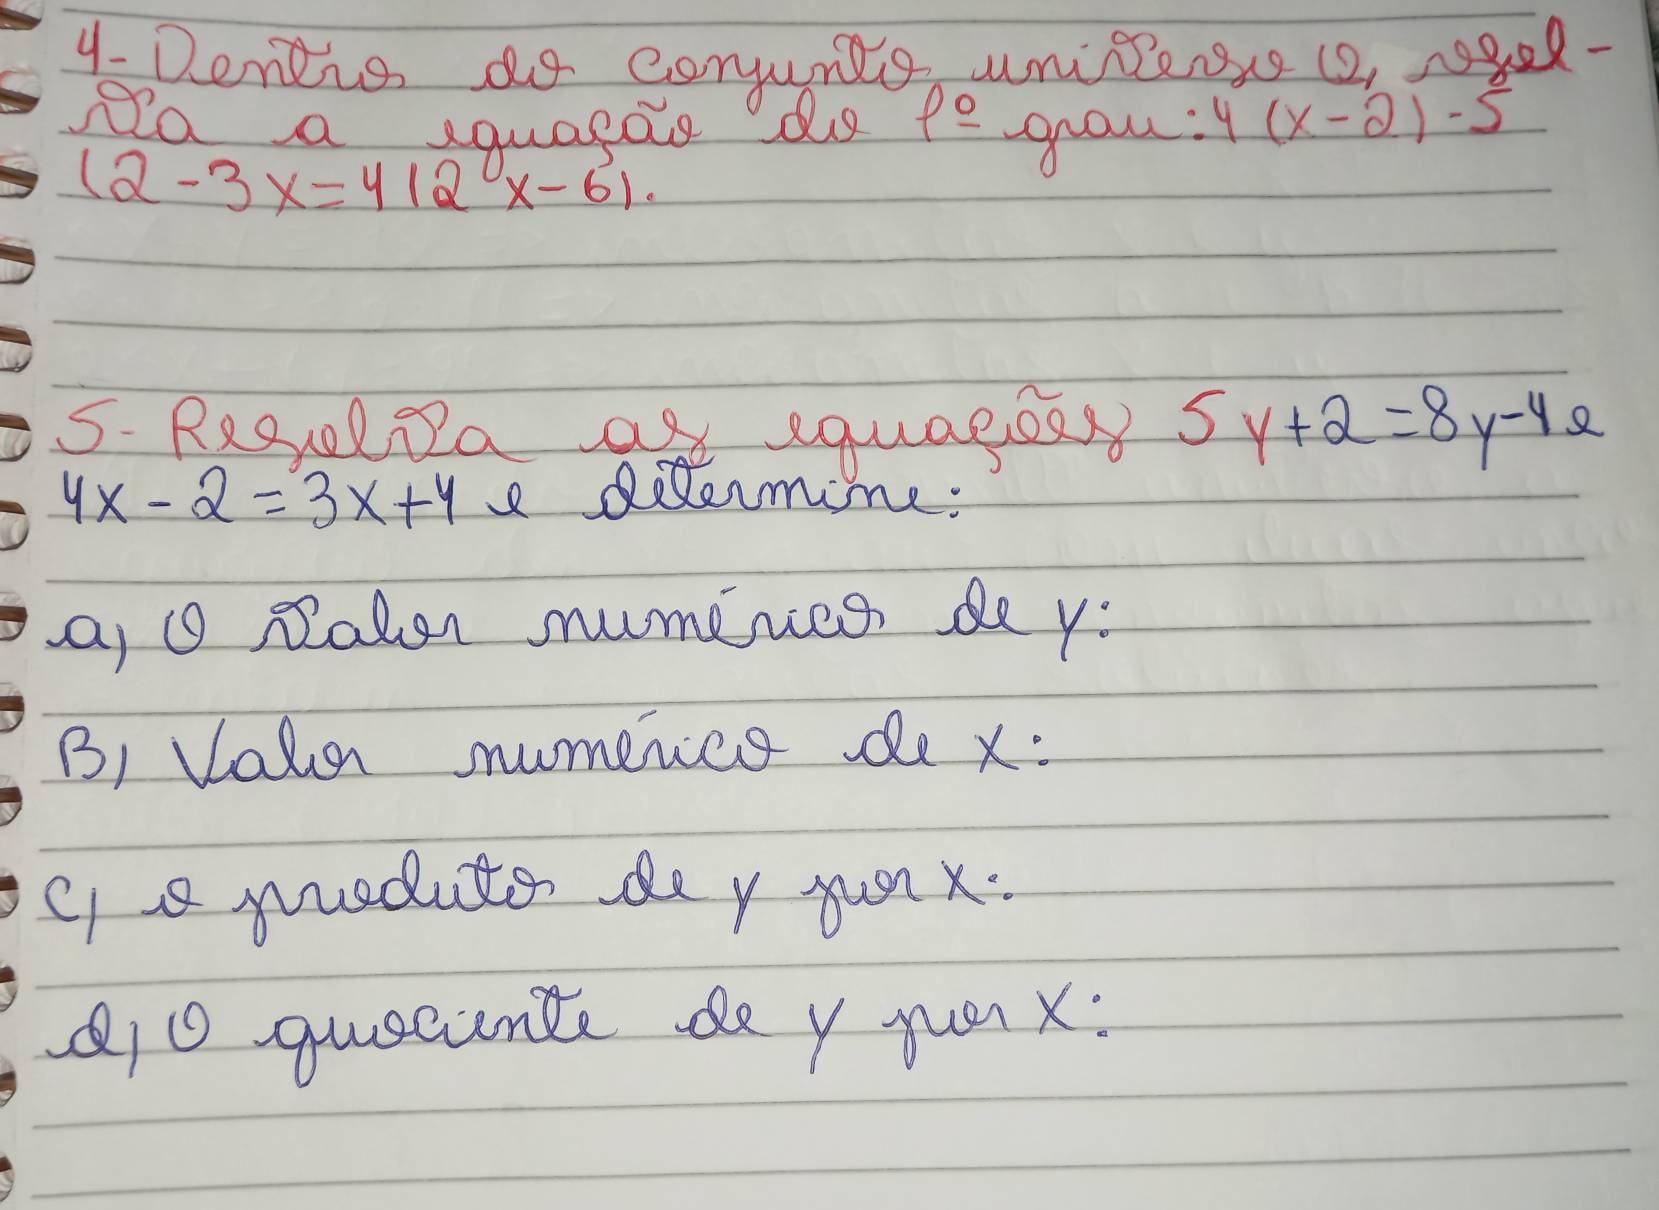 4- Dentro do conjunto universo Q, resol-
va a equação do 1º grau: 4 (x-2) - 5
(2 - 3x = 4 (2 x - 6).
5- Resolva as equações 5y+2=8y-4 e
4x - 2 = 3x + 4 e determine:
a) O valor numérico de y:
B) Valor numérico de x:
c) o produto de y por x:
d) O quociente de y por x: